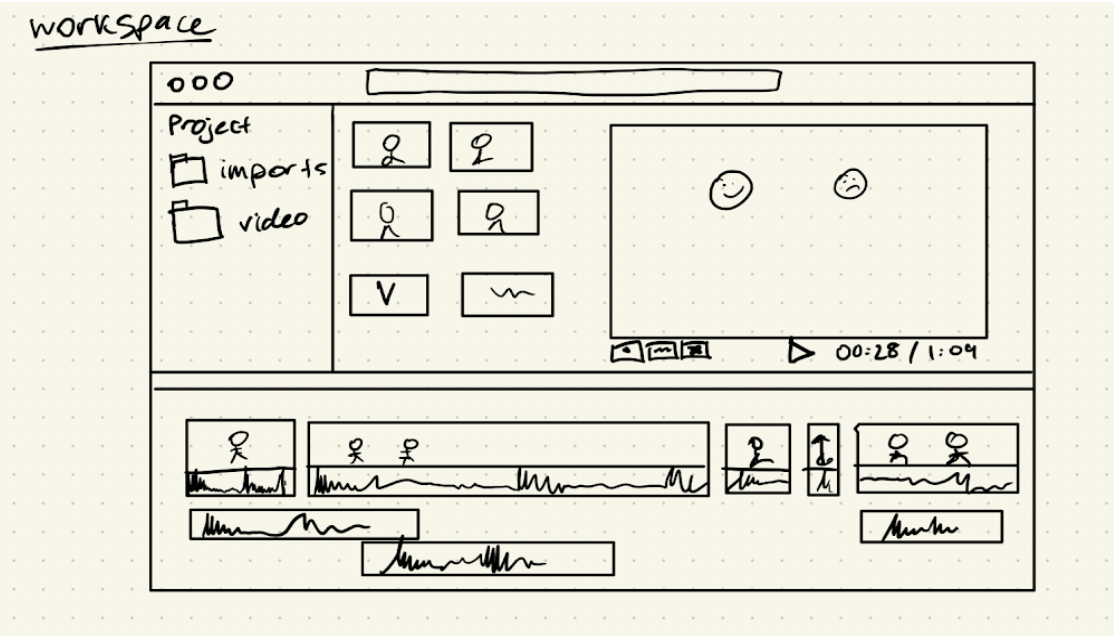 workspace
Project
imports
video
00:28 / 1:09